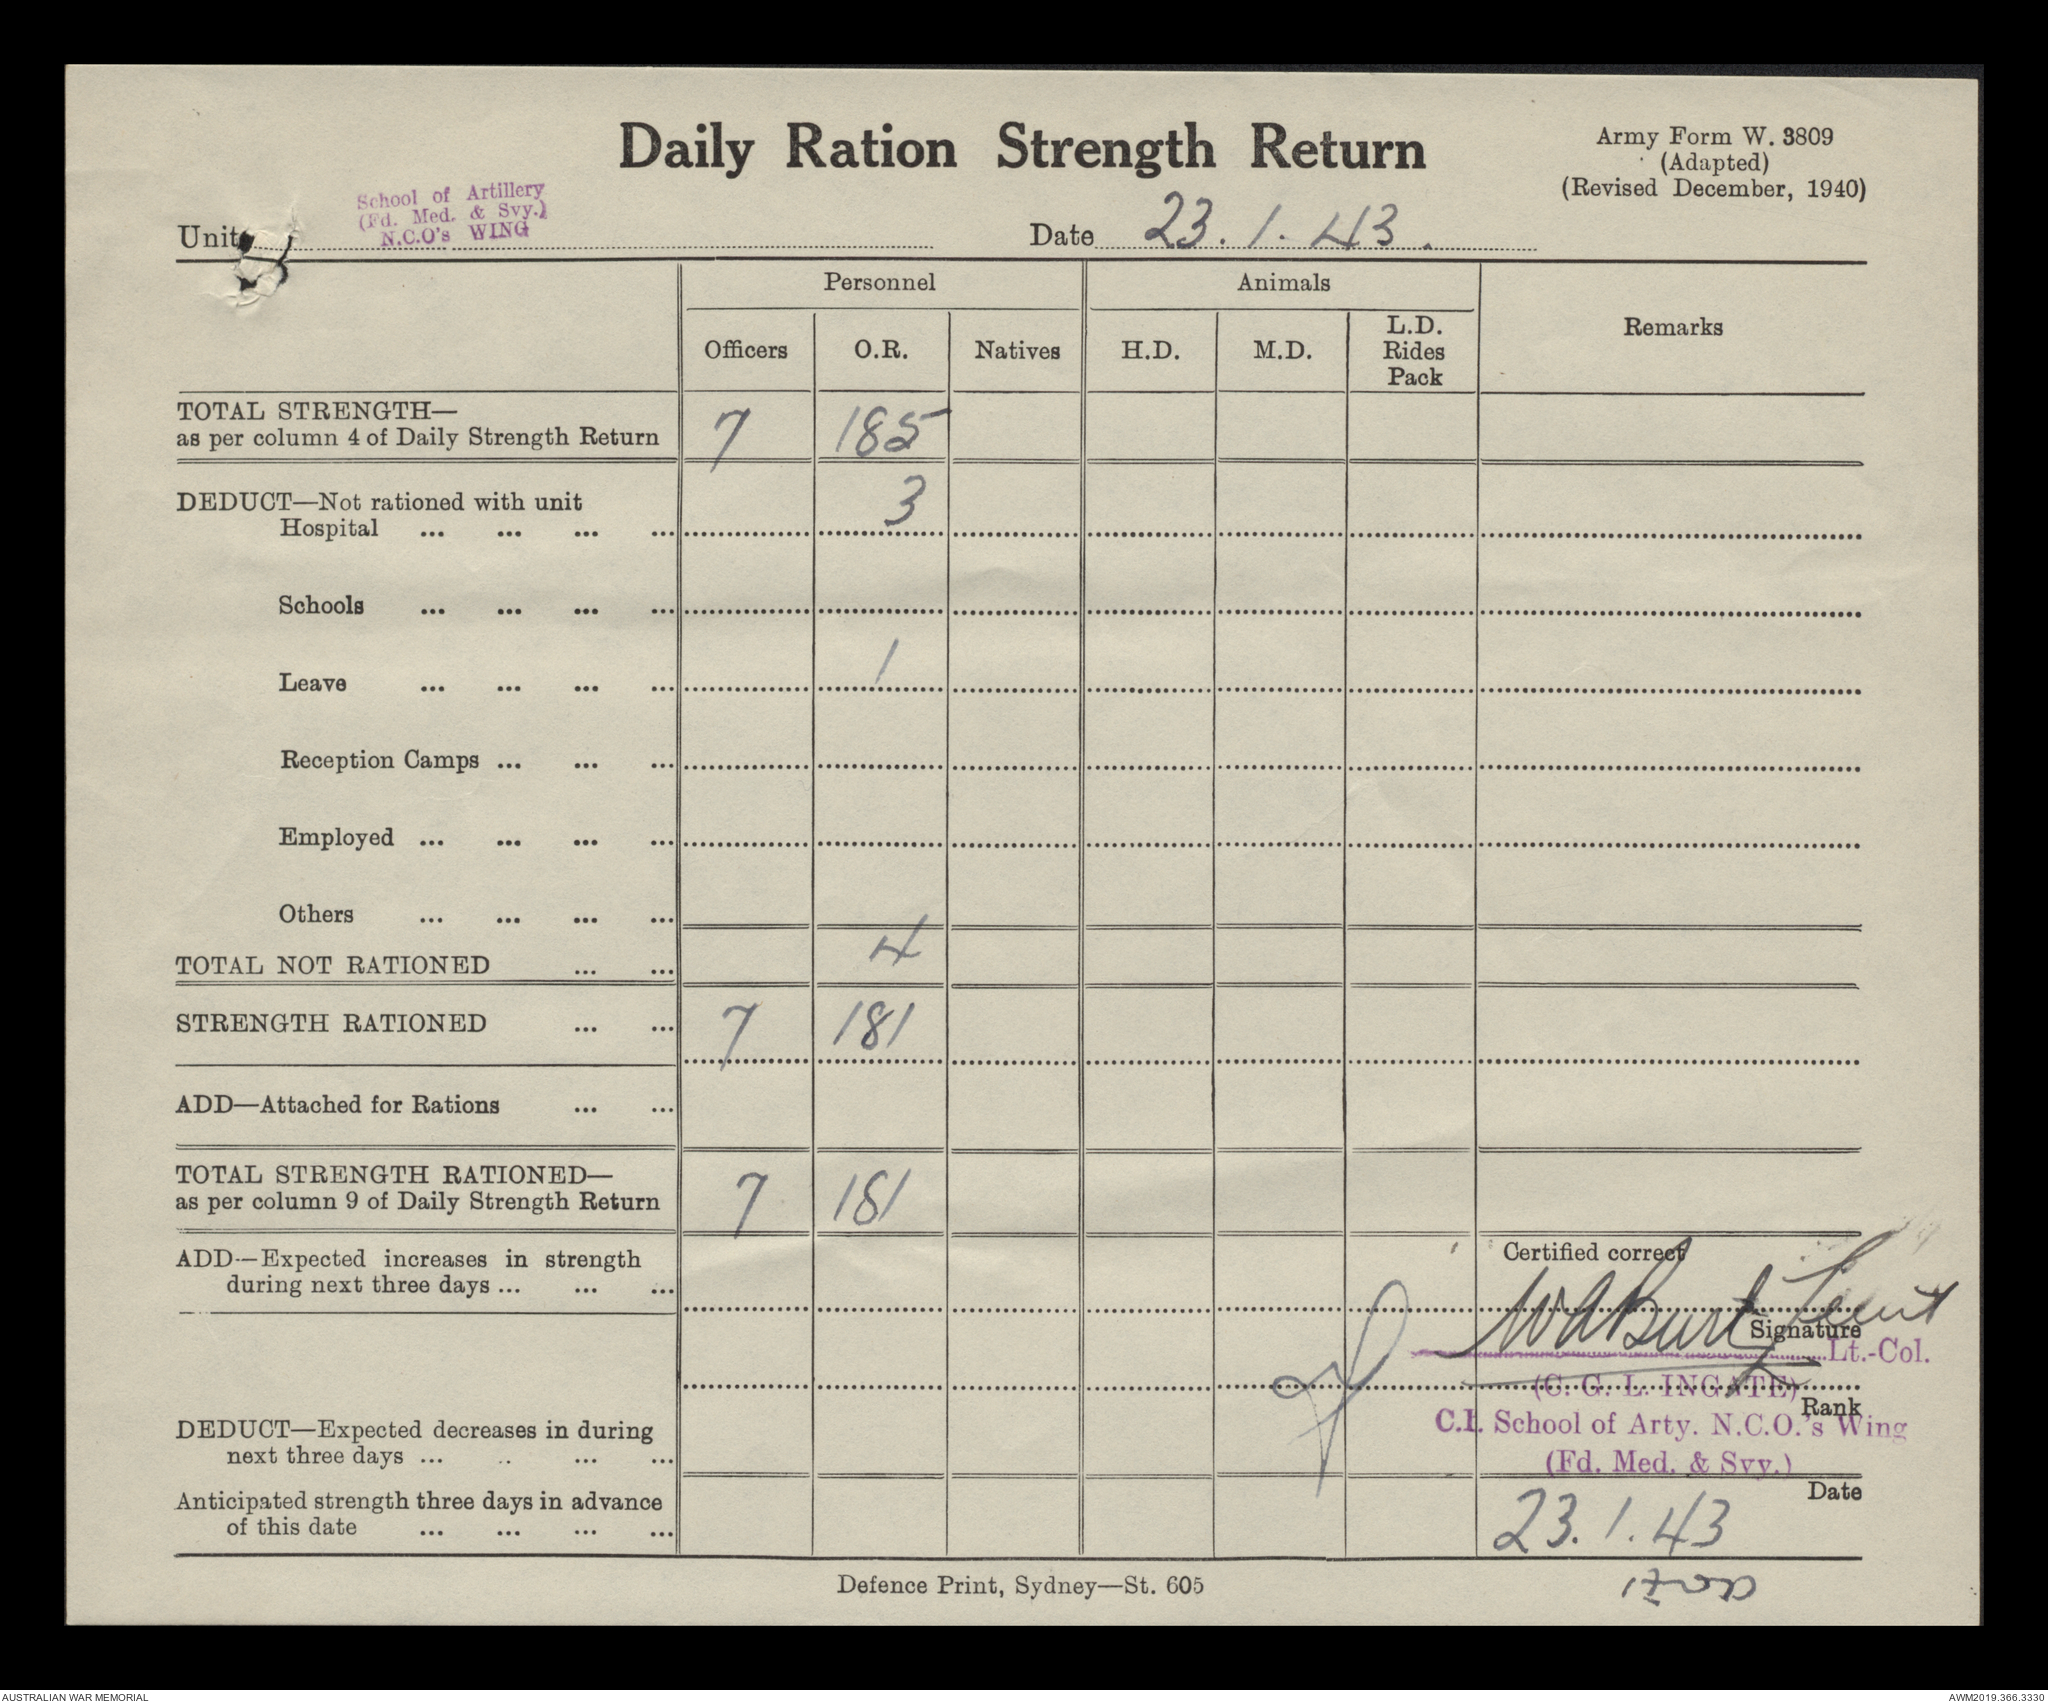 Daily Ration Strength Return
Army Form W. 3809
(Adapted)
(Revised December, 1940)
School of Artillery
(Fd. Med. & Svy.)
N.C.O's WING
Unit
Date 23.1.43.
Personnel
Animals
Remarks
Officers
O.R.
Natives
H.D.
M.D.
L.D.
Rides
Pack
TOTAL STRENGTH—
as per column 4 of Daily Strength Return 7 185
DEDUCT—Not rationed with unit
Hospital ... ... ... ... 3
Schools ... ... ... ...
Leave ... ... ... ... 1
Reception Camps ... ... ...
Employed ... ... ... ...
Others ... ... ... ...
TOTAL NOT RATIONED ... ... 4
STRENGTH RATIONED ... ... 7 181
ADD—Attached for Rations ... ...
TOTAL STRENGTH RATIONED—
as per column 9 of Daily Strength Return 7 181
ADD—Expected increases in strength
during next three days ... ... ...
Certified correct
WABurt Lieut
Signature
Lt.-Col.
(C. G. L. INGATE)
Rank
C.I. School of Arty. N.C.O.'s Wing
(Fd. Med. & Svy.)
DEDUCT—Expected decreases in during
next three days ... .. ... ...
Date
23.1.43
Anticipated strength three days in advance
of this date ... ... ... ...
Defence Print, Sydney—St. 605
AUSTRALIAN WAR MEMORIAL
AWM2019.366.3330